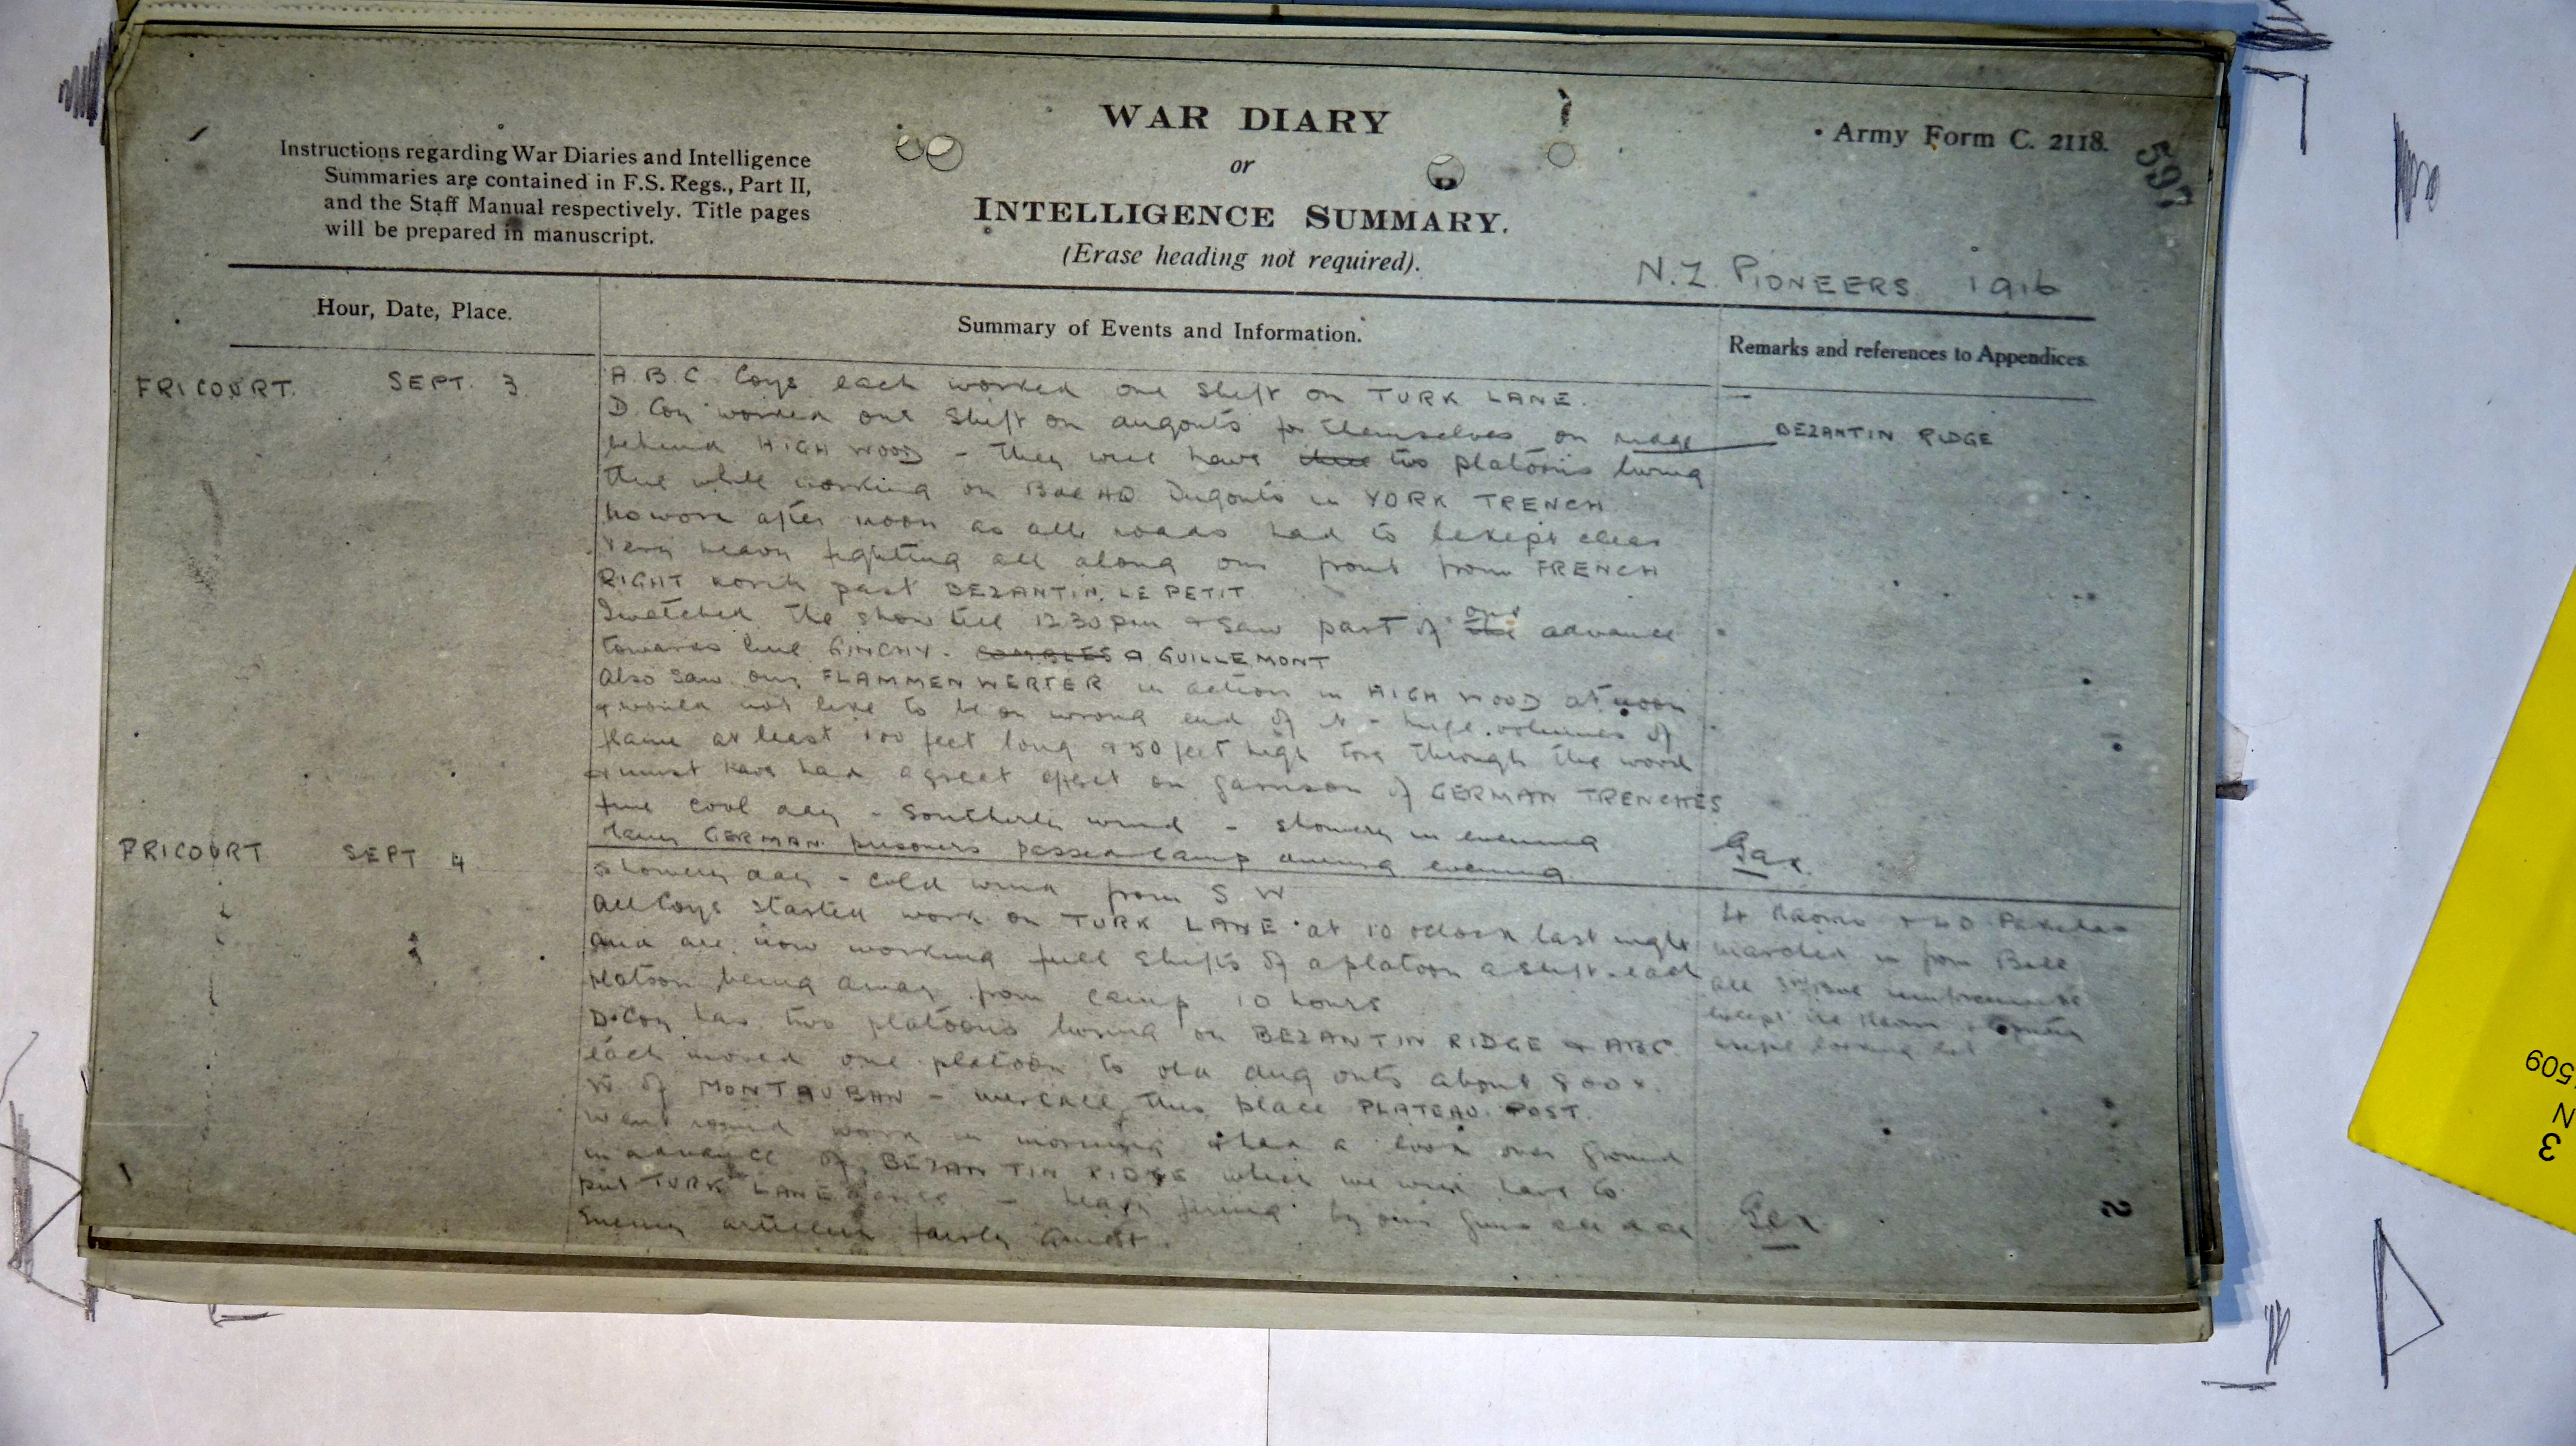 WAR DIARY
or
INTELLIGENCE SUMMARY.
(Erase heading not required).
Instructions regarding War Diaries and Intelligence
Summaries are contained in F.S. Regs., Part II,
and the Staff Manual respectively. Title pages
will be prepared in manuscript.
Army Form C. 2118.
597
N.Z. PIONEERS 1916
Hour, Date, Place.
Summary of Events and Information.
Remarks and references to Appendices.
FRICOURT. SEPT. 3
A.B.C. Coys each worked one shift on TURK LANE.
D Coy worked one shift on dugouts for themselves on ridge
BEZANTIN RIDGE
behind HIGH WOOD - they will have two platoons living
there while working on Bde HQ Dugouts in YORK TRENCH
No work after noon as all roads had to be kept clear
Very heavy fighting all along our front from FRENCH
RIGHT north past BEZANTIN. LE PETIT
I watched the show till 12.30 pm & saw part of our advance
towards line GINCHY. COMBLES & GUILLEMONT
Also saw our FLAMMENWERFER in action in HIGH WOOD at noon
& would not like to be on wrong end of it - huge volumes of
flame at least 100 feet long & 50 feet high tore through the wood
& must have had a great effect on garrison of GERMAN TRENCHES
fine cool day - Southerly wind - showery in evening
Many GERMAN prisoners passed camp during evening
FRICOURT SEPT 4
Showery day - cold wind from S W
All Coys started work on TURK LANE at 10 oclock last night
and are now working full shifts of a platoon a shift - each
platoon being away from camp 10 hours
D Coy has two platoons living on BEZANTIN RIDGE & ABC
each moved one platoon to old dug outs about 800x
W of MONTAUBAN - we call this place PLATEAU POST.
Went round work in morning & had a look over ground
in advance of BEZANTIN RIDGE which we will have to
put TURK LANE - heavy firing by our guns all day
Enemy artillery fairly quiet.
marched in from Base
all 3rd
except
looking lot
2
509
N
3